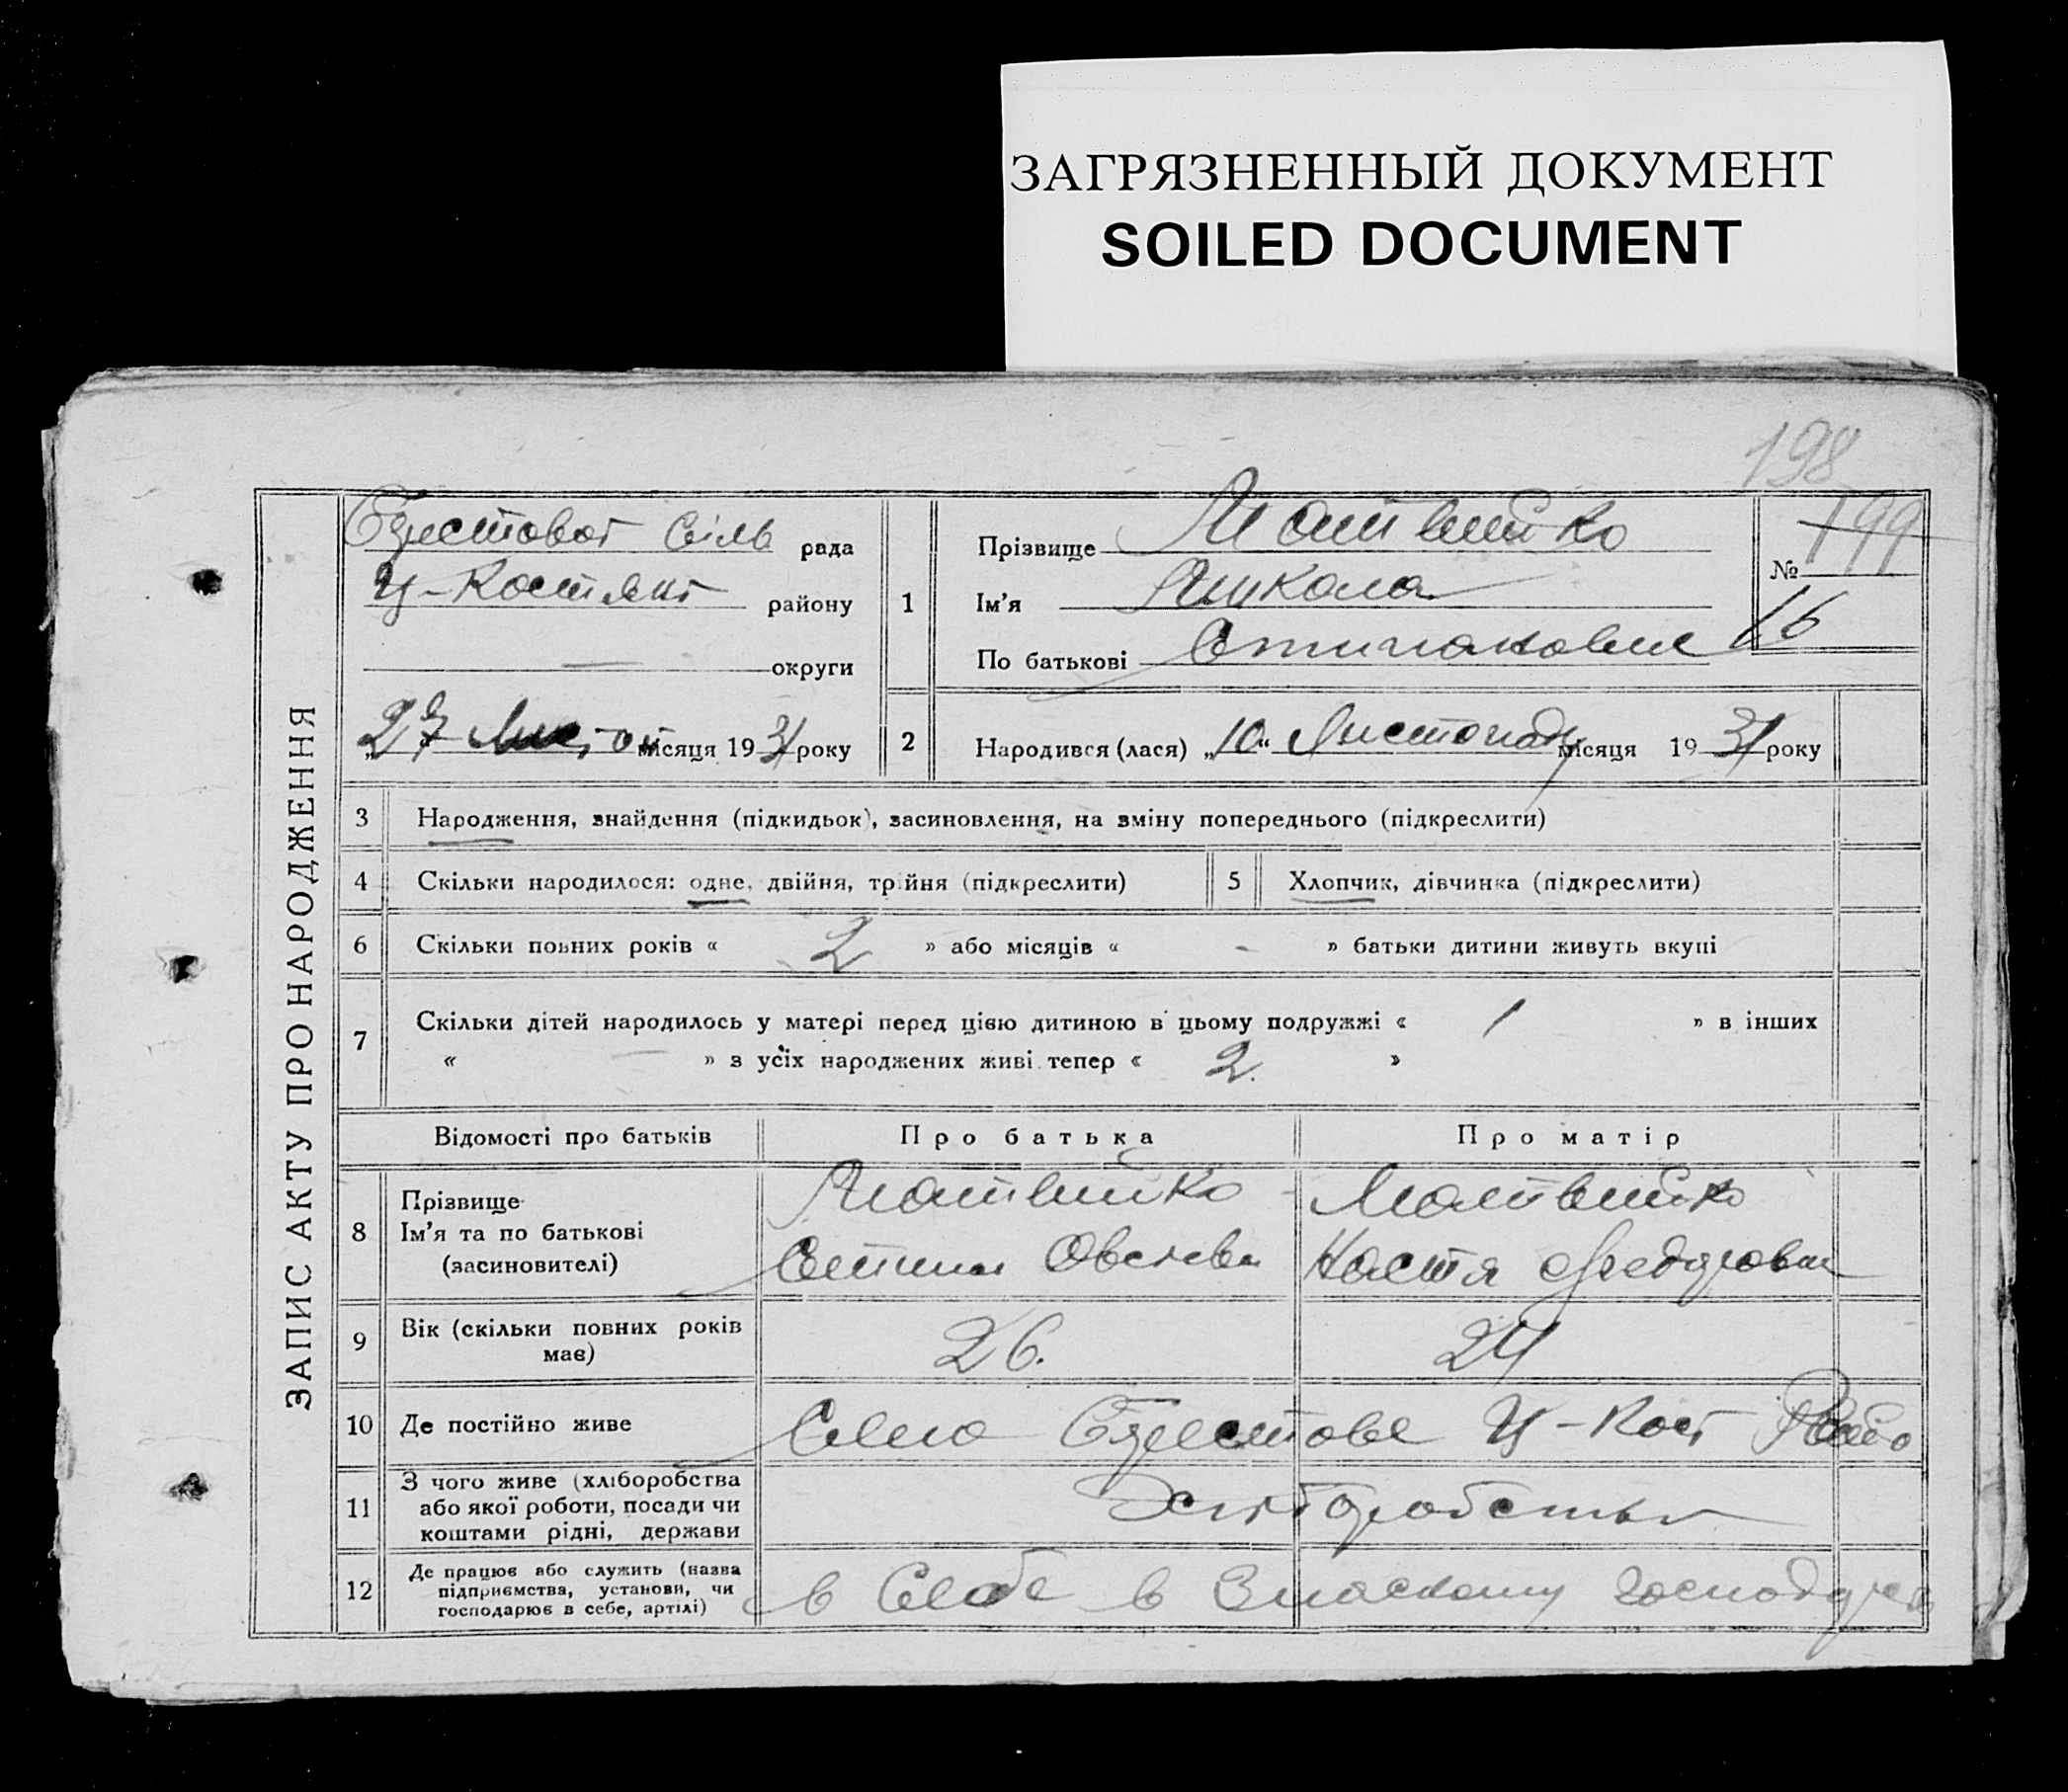 ЗАГРЯЗНЕННЫЙ ДОКУМЕНТ
SOILED DOCUMENT
198
199
ЗАПИС АКТУ ПРО НАРОДЖЕННЯ
Сіль рада
району
— округи
місяця 1931 року
1
Прізвище Матвийко
Ім'я Микола
По батькові
№ 16
2
Народився (лася) „10“ Листопаду місяця 1931 року
3 Народження, знайдення (підкидьок), засиновлення, на зміну попереднього (підкреслити)
4 Скільки народилося: одне, двійня, трійня (підкреслити)
5 Хлопчик, дівчинка (підкреслити)
6 Скільки повних років « 2 » або місяців « - » батьки дитини живуть вкупі
7 Скільки дітей народилось у матері перед цією дитиною в цьому подружжі « 1 » в інших
« — » з усіх народжених живі тепер « 2. »
Відомості про батьків Про батька Про матір
8 Прізвище Матвийко Матвийко
Ім'я та по батькові Настя Федоровна
(засиновителі)
9 Вік (скільки повних років має) 26. 24
10 Де постійно живе Село Ц-Кост
11 З чого живе (хліборобства
або якої роботи, посади чи
коштами рідні, держави
12 Де працює або служить (назва
підприємства, установи, чи
господарює в себе, артілі)
в Себе в